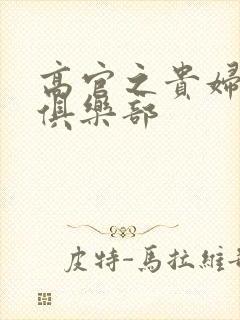 高官之貴婦
俱樂部
皮特-馬拉維